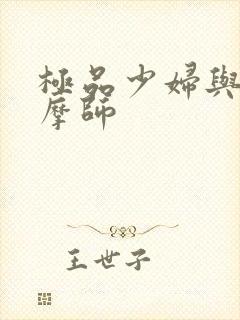 極品少婦與
摩師
王世子